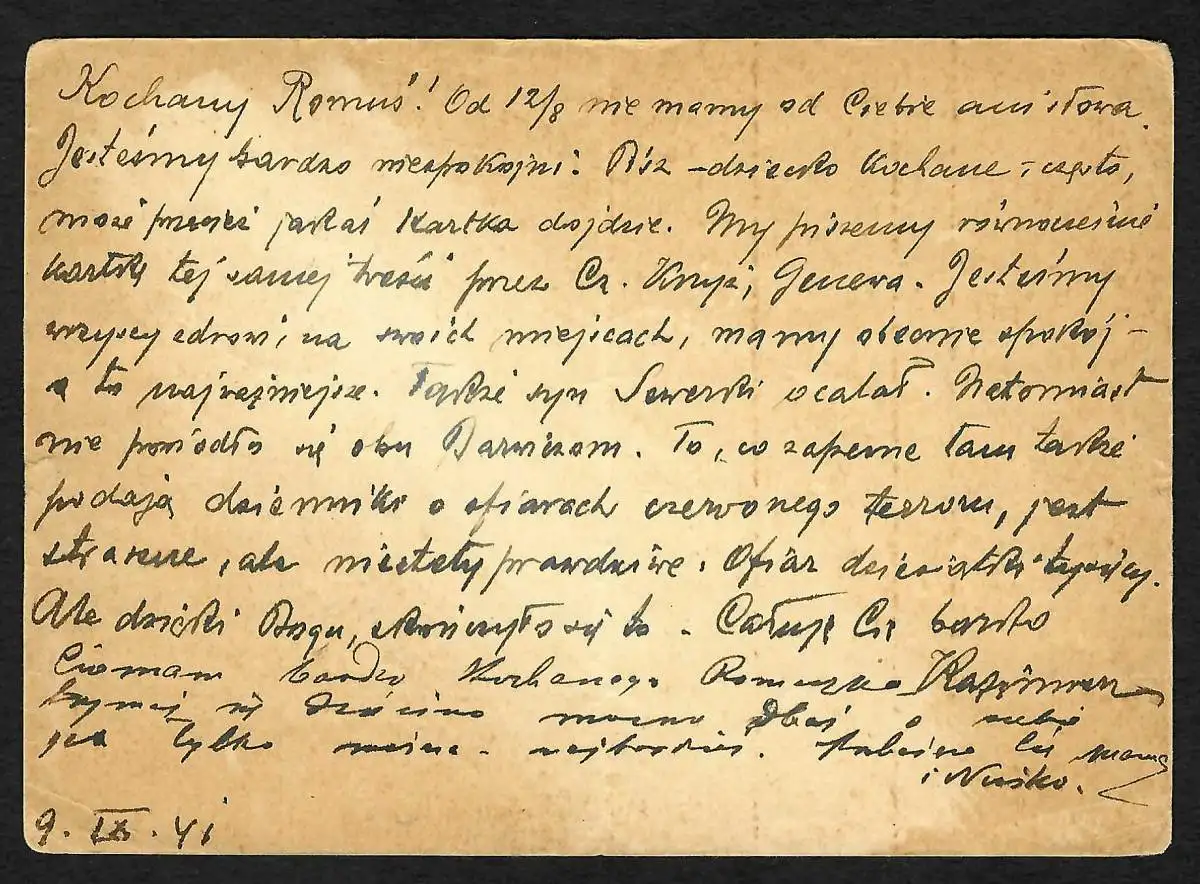 Kochany Romuś! Od 12/8 nie mamy od Ciebie ani słowa.
Jesteśmy bardzo niespokojni. Pisz – dziecko kochane, często,
może przecież jakaś kartka dojdzie. My piszemy równocześnie
kartkę tej samej treści przez Cz. Krzyż, Genewa. Jesteśmy
wszyscy zdrowi, na swoich miejscach, mamy obecnie spokój –
a to najważniejsze. Także syn Sewerski ocalał. Natomiast
nie powiodło się obu Barwiczom. To, co zapewne tam także
podają dzienniki o ofiarach czerwonego terroru, jest
straszne, ale niestety prawdziwe. Ofiar dziesiątki tysięcy.
Ale dzięki Bogu, skończyło się to. Całuję Cię bardzo
bardzo Kochanego Romuszka Kazimierz
się mocno dbaj o siebie
tylko można najbardziej. Cię Mama
i Nuśka.
9. IX. 41